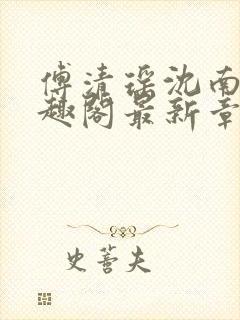 傅清瑶沈南
趣阁最新章
史蒈夫